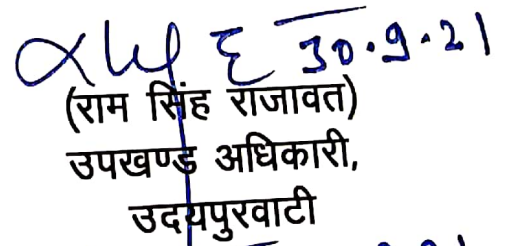 30.9.21
(राम सिंह राजावत)
उपखण्ड अधिकारी,
उदयपुरवाटी